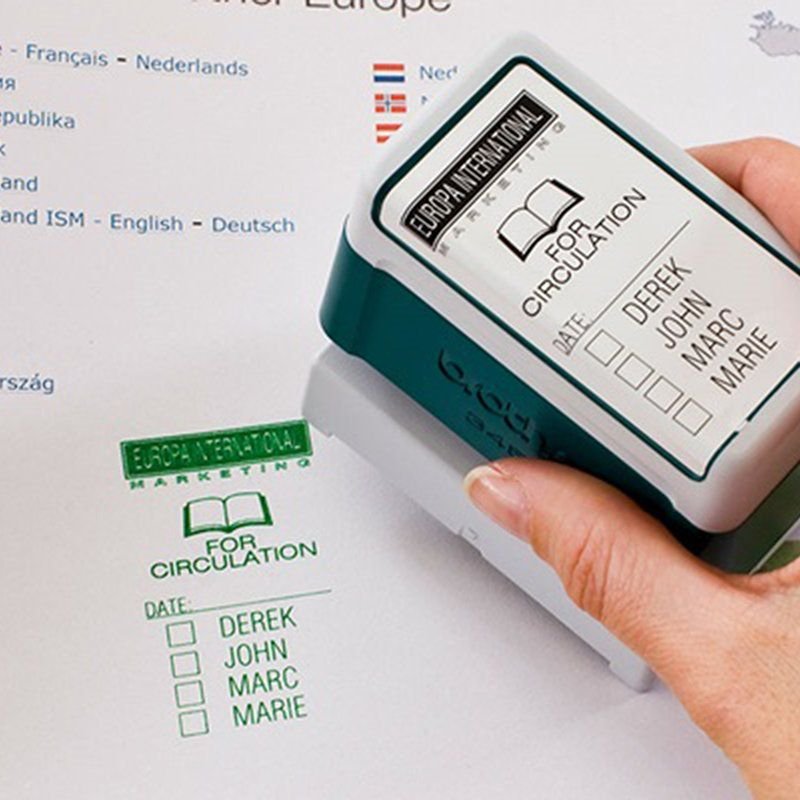 Europe
- Français - Nederlands
ия
epublika
k
and
and ISM - English - Deutsch
rszág
Ned
EUROPA INTERNATIONAL
MARKETING
FOR
CIRCULATION
DATE:
DEREK
JOHN
MARC
MARIE
EUROPA INTERNATIONAL
MARKETING
FOR
CIRCULATION
DATE:
DEREK
JOHN
MARC
MARIE